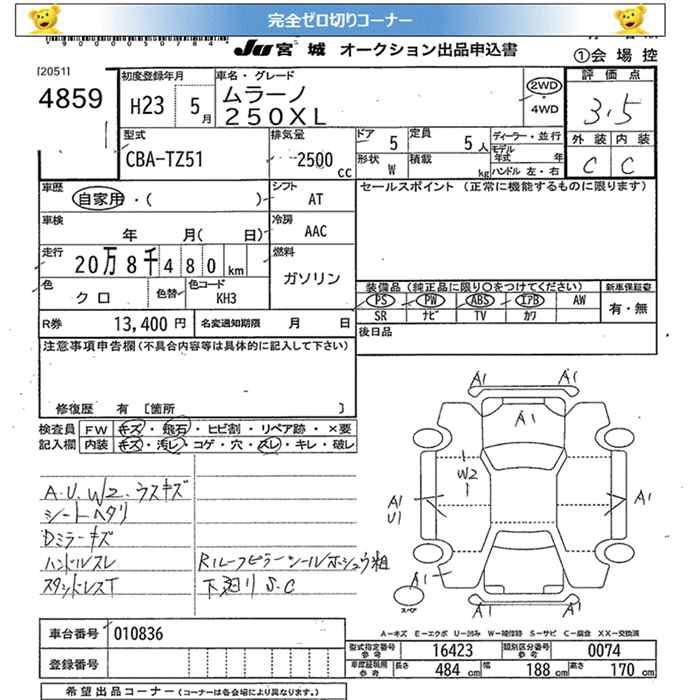 完全ゼロ切りコーナー
JU 宮城 オークション出品申込書
①会場控
[2051]
4859
初度登録年月
H23 5月
車名・グレード
ムラーノ
250XL
2WD
・
4WD
評価点
3.5
外装 内装
C C
型式
CBA-TZ51
排気量
2500 cc
ドア 5
定員 5人
形状 W
積載 kg
ディーラー・並行
モデル年式 年
ハンドル 左・右
車歴
自家用・( )
シフト
AT
セールスポイント (正常に機能するものに限ります)
車検
年 月( 日)
冷房
AAC
走行
20万8千480km
燃料
ガソリン
色
クロ
色替
色コード
KH3
装備品(純正品に限り○をつけてください)
PS PW ABS エアB AW
SR ナビ TV カワ
新車保証書
有・無
R券 13,400円
名変通知期限 月 日
後日品
注意事項申告欄(不具合内容等は具体的に記入して下さい)
修復歴 有 [箇所 ]
検査員記入欄
FW キズ・飛石・ヒビ割・リペア跡・×要
内装 キズ・汚レ・コゲ・穴・スレ・キレ・破レ
A.U.W2.ラスキズ
シートヘタリ
Dミラーキズ
ハンドルスレ
スタッドレスT
Rルーフピラーシールホシュウ粗
下廻りS.C
A1 A1
A1
W2
A1
U1
A1
A1
スペア
A1 A1
A-キズ E-エクボ U-凹み W-補修跡 S-サビ C-腐食 XX-交換済
車台番号 010836
登録番号
型式指定番号参考 16423
類別区分番号参考 0074
車庫証明用参考 長さ 484cm 幅 188cm 高さ 170cm
希望出品コーナー(コーナーは各会場により異なります。)